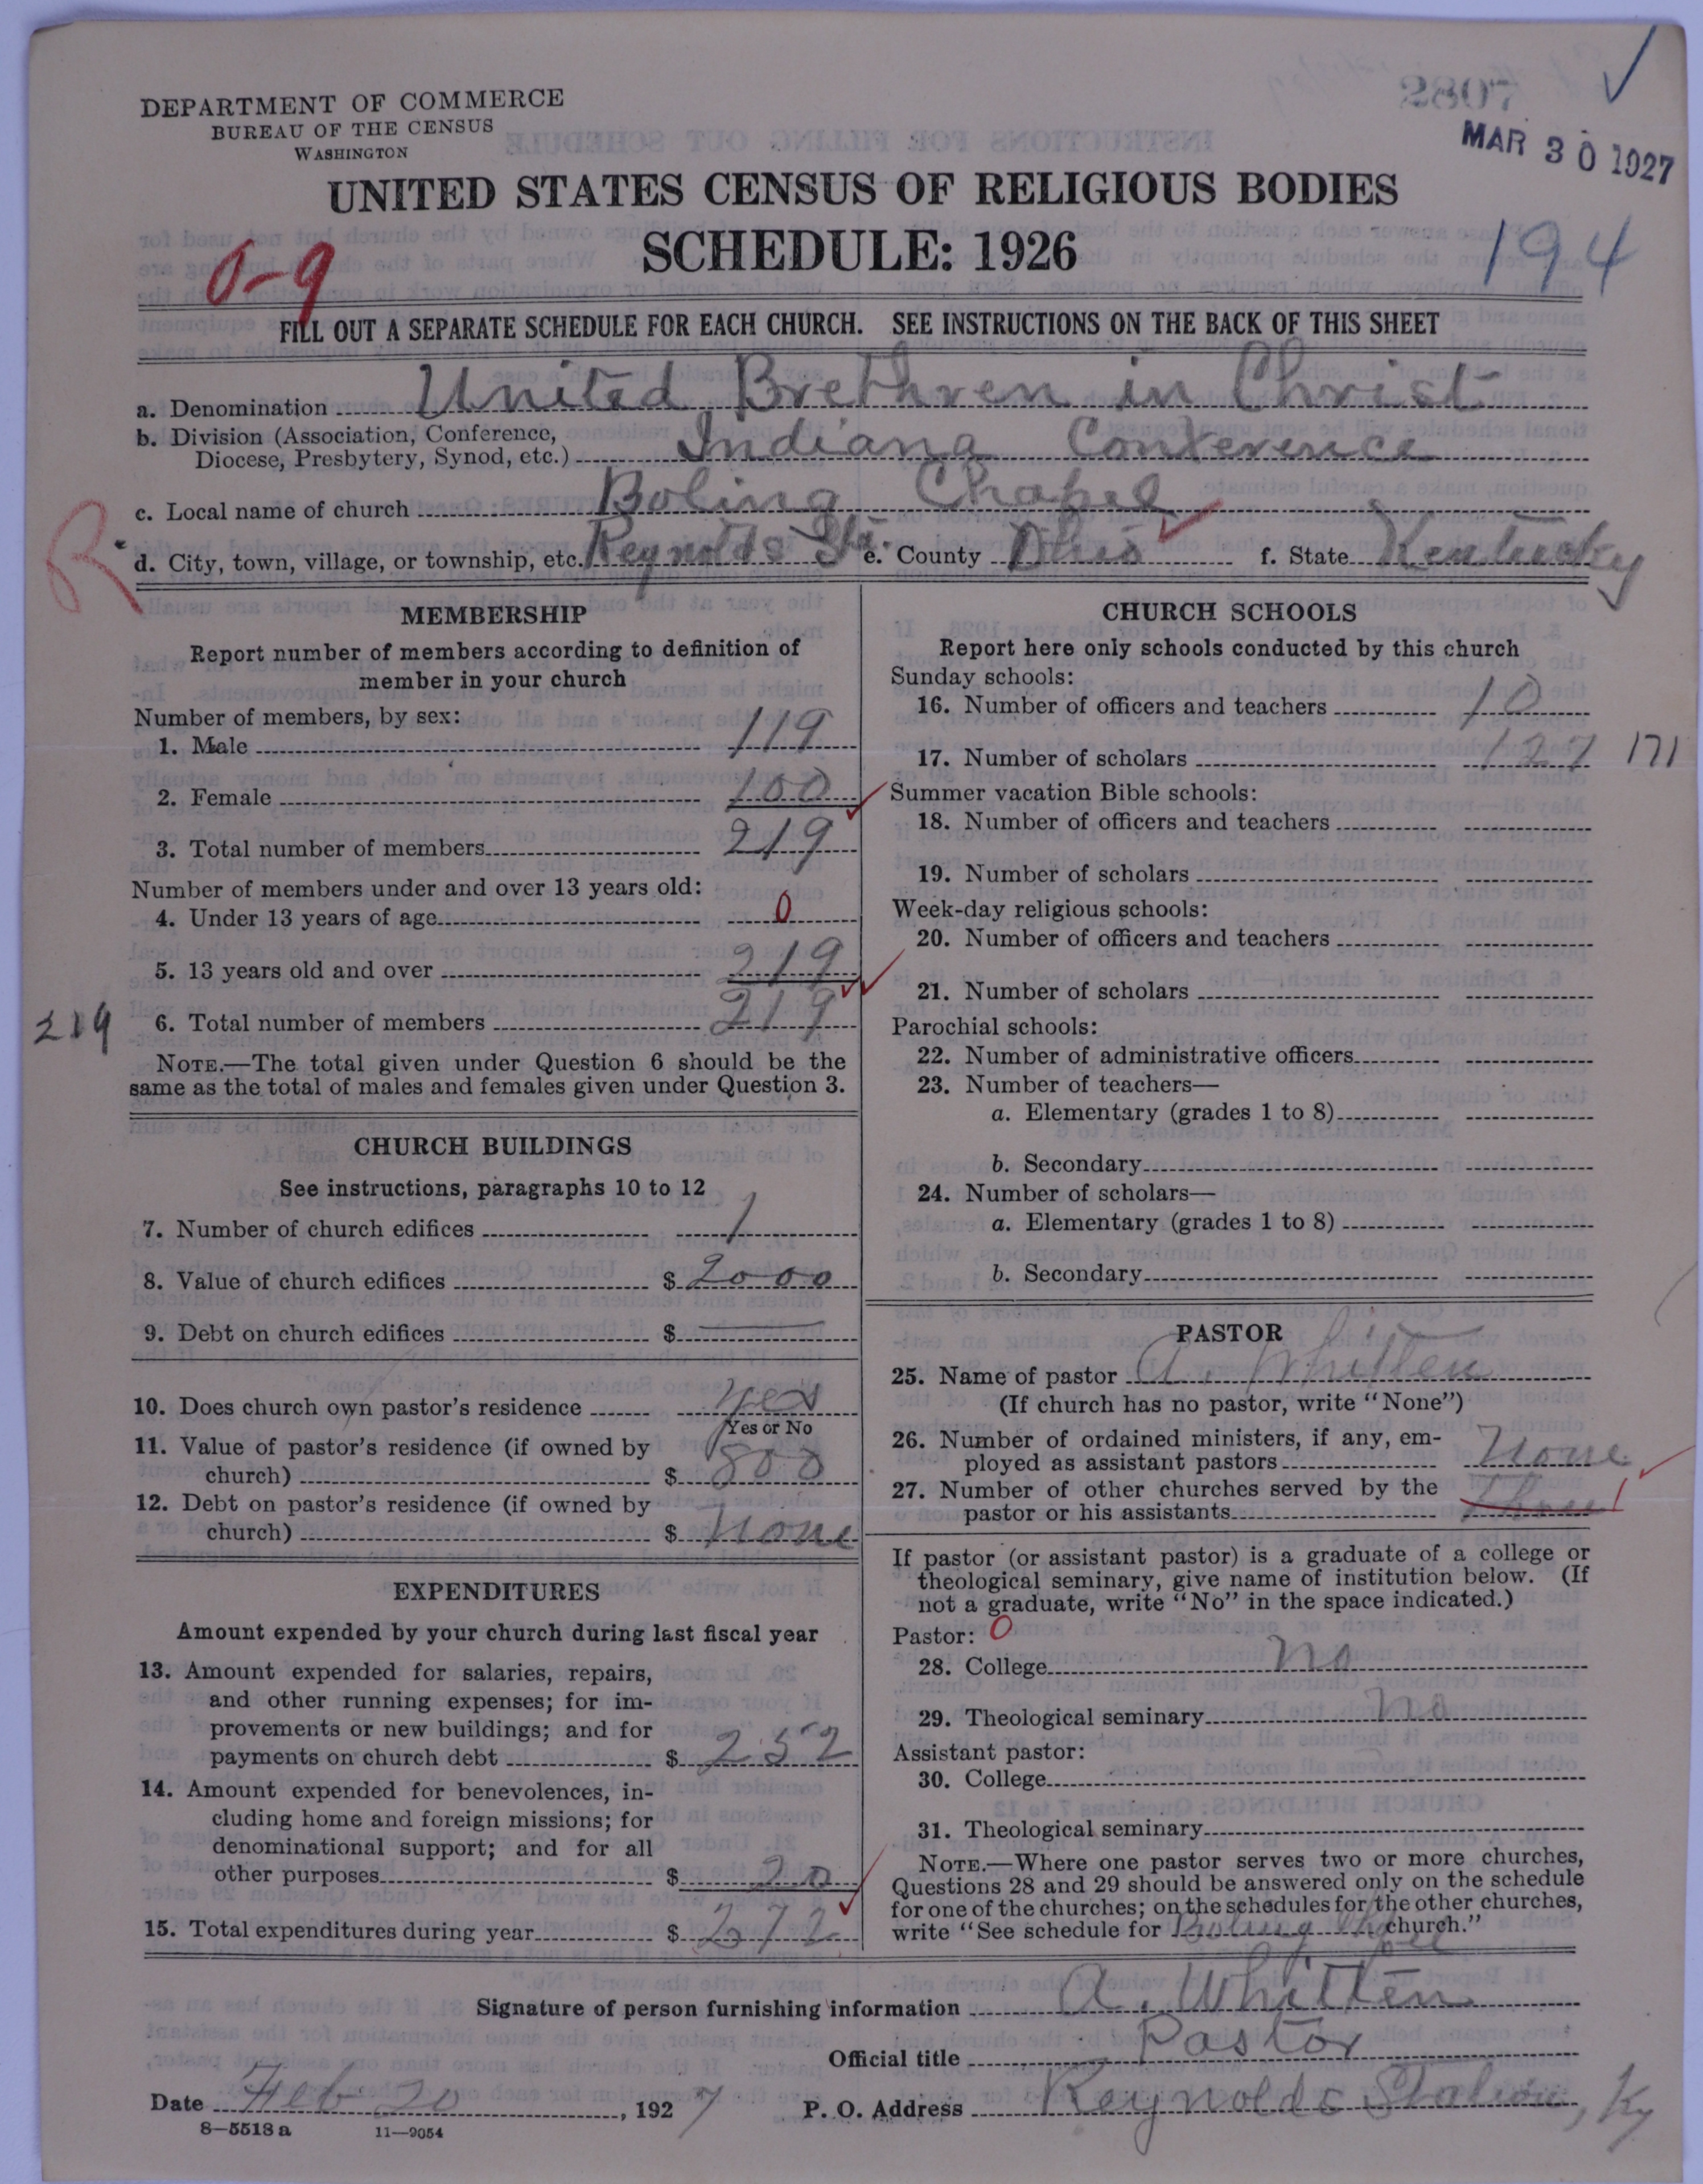 2807
MAR 30 1927
DEPARTMENT OF COMMERCE
BUREAU OF THE CENSUS
WASHINGTON
UNITED STATES CENSUS OF RELIGIOUS BODIES
SCHEDULE: 1926
0-9
194
FILL OUT A SEPARATE SCHEDULE FOR EACH CHURCH. SEE INSTRUCTIONS ON THE BACK OF THIS SHEET
a. Denomination United Brethren in Christ
b. Division (Association, Conference,
Diocese, Presbytery, Synod, etc.) Indiana Conference
c. Local name of church Boling Chapel
R
d. City, town, village, or township, etc. Reynolds Sta. e. County Ohio f. State Kentucky
MEMBERSHIP
Report number of members according to definition of
member in your church
Number of members, by sex:
1. Male 119
2. Female 100
3. Total number of members 219
Number of members under and over 13 years old:
4. Under 13 years of age 0
5. 13 years old and over 219
219
6. Total number of members 219
NOTE.—The total given under Question 6 should be the
same as the total of males and females given under Question 3.
CHURCH BUILDINGS
See instructions, paragraphs 10 to 12
7. Number of church edifices 1
8. Value of church edifices $ 2000
9. Debt on church edifices $ —
10. Does church own pastor's residence yes
Yes or No
11. Value of pastor's residence (if owned by
church) $ 800
12. Debt on pastor's residence (if owned by
church) $ None
EXPENDITURES
Amount expended by your church during last fiscal year
13. Amount expended for salaries, repairs,
and other running expenses; for im-
provements or new buildings; and for
payments on church debt $ 252
14. Amount expended for benevolences, in-
cluding home and foreign missions; for
denominational support; and for all
other purposes $ 20
15. Total expenditures during year $ 272
CHURCH SCHOOLS
Report here only schools conducted by this church
Sunday schools:
16. Number of officers and teachers 10
17. Number of scholars 127 171
Summer vacation Bible schools:
18. Number of officers and teachers
19. Number of scholars
Week-day religious schools:
20. Number of officers and teachers
21. Number of scholars
Parochial schools:
22. Number of administrative officers
23. Number of teachers—
a. Elementary (grades 1 to 8)
b. Secondary
24. Number of scholars—
a. Elementary (grades 1 to 8)
b. Secondary
PASTOR
25. Name of pastor A. Whitten
(If church has no pastor, write "None")
26. Number of ordained ministers, if any, em-
ployed as assistant pastors None
27. Number of other churches served by the
pastor or his assistants 1
If pastor (or assistant pastor) is a graduate of a college or
theological seminary, give name of institution below. (If
not a graduate, write "No" in the space indicated.)
Pastor: 0
28. College No
29. Theological seminary No
Assistant pastor:
30. College
31. Theological seminary
NOTE.—Where one pastor serves two or more churches,
Questions 28 and 29 should be answered only on the schedule
for one of the churches; on the schedules for the other churches,
write "See schedule for Boling Chapel church."
Signature of person furnishing information A. Whitten
Official title Pastor
Date Feb 20, 1927 P. O. Address Reynolds Station, Ky
8—5518 a 11—9054